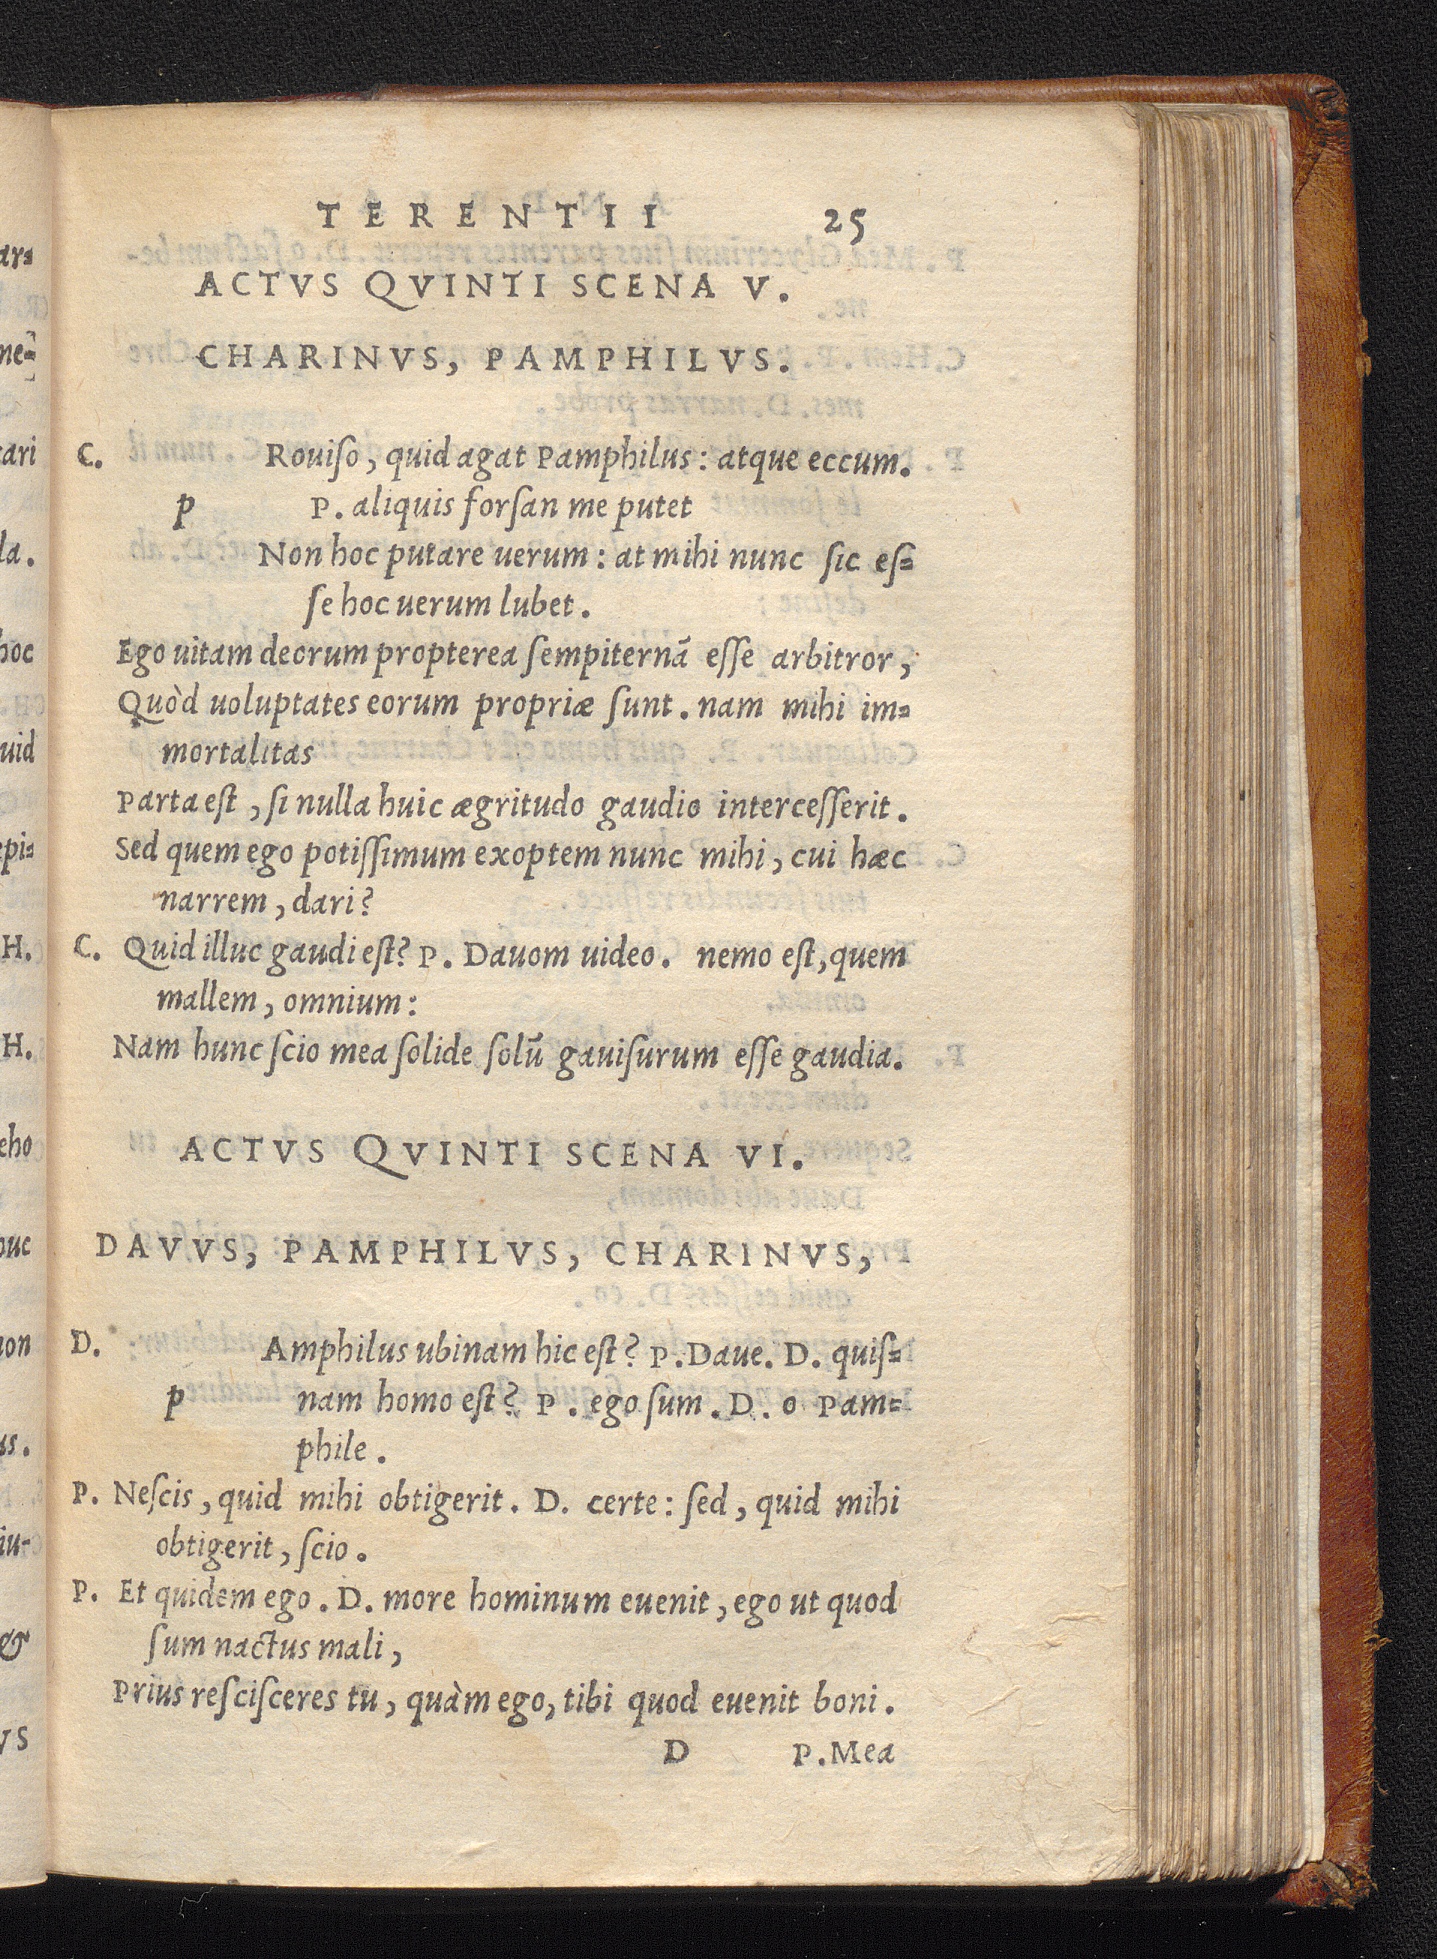 TERENTII 25
ACTVS QVINTI SCENA V.
CHARINVS, PAMPHILVS.
C. Rouiſo, quid agat Pamphilus: atque eccum.
p P. aliquis forſan me putet
Non hoc putare uerum: at mihi nunc ſic eſ=
ſe hoc uerum lubet.
Ego uitam deorum propterea ſempiternã eſſe arbitror,
Quòd uoluptates eorum propriæ ſunt. nam mihi im=
mortalitas
Parta eſt, ſi nulla huic ægritudo gaudio interceſſerit.
Sed quem ego potiſſimum exoptem nunc mihi, cui hæc
narrem, dari?
C. Quid illuc gaudi eſt? P. Dauom uideo. nemo eſt, quem
mallem, omnium:
Nam hunc ſcio mea ſolide ſolũ gauiſurum eſſe gaudia.
ACTVS QVINTI SCENA VI.
DAVVS, PAMPHILVS, CHARINVS,
D. Amphilus ubinam hic eſt? P. Daue. D. quiſ=
p nam homo eſt? P. ego ſum. D. o Pam=
phile.
P. Neſcis, quid mihi obtigerit. D. certe: ſed, quid mihi
obtigerit, ſcio.
P. Et quidem ego. D. more hominum euenit, ego ut quod
ſum nactus mali,
Prius reſciſceres tu, quàm ego, tibi quod euenit boni.
D P. Mea